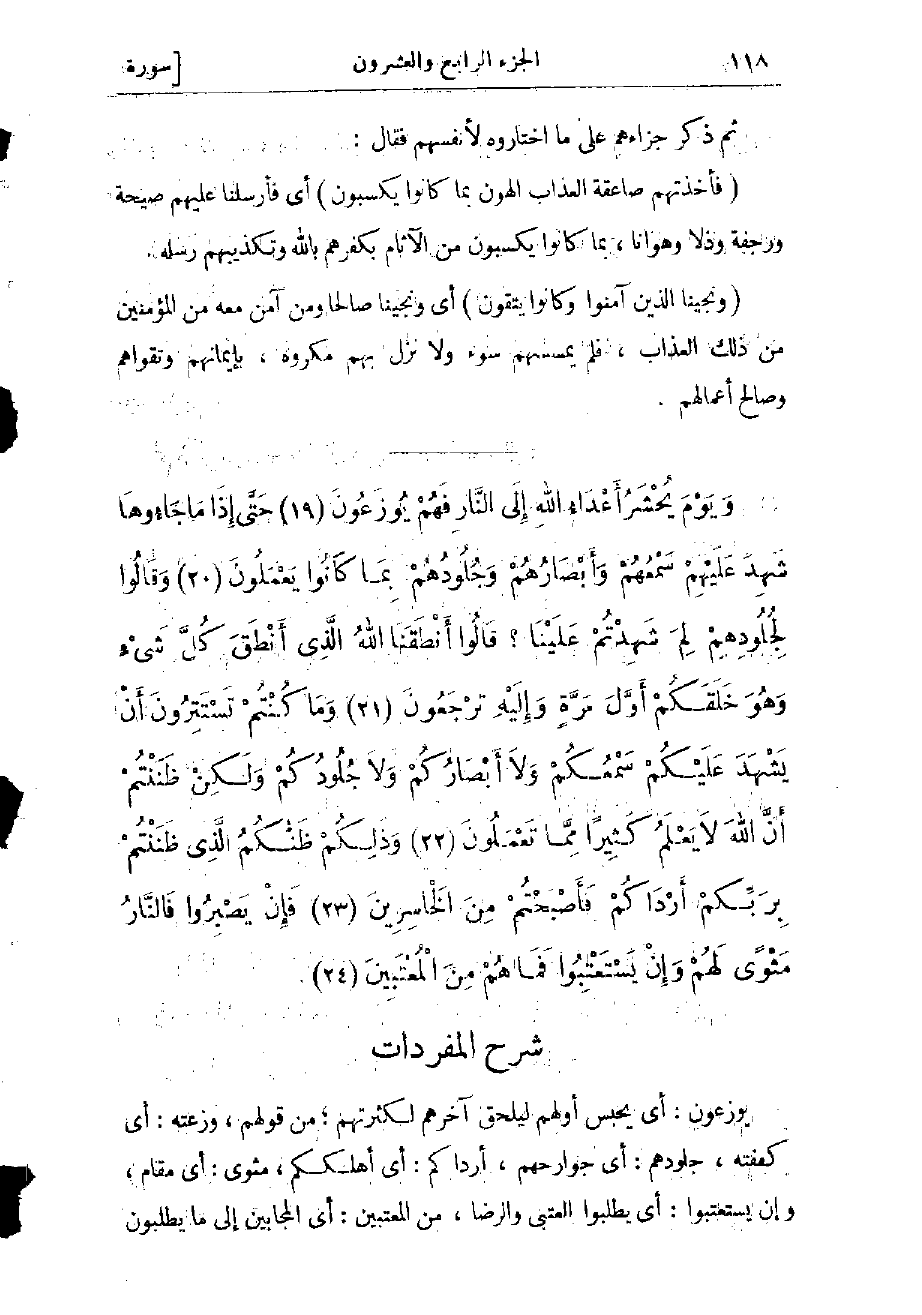 ١١٨ الجزء الرابع والعشرون [سورة
ثم ذكر جزاءهم على ما اختاروه لأنفسهم فقال :
( فأخذتهم صاعقة العذاب الهون بما كانوا يكسبون ) أى فأرسلنا عليهم صيحة
ورجفة وذلا وهوانا ، بما كانوا يكسبون من الآثام بكفرهم بالله وتكذيبهم رسله .
( ونجينا الذين آمنوا وكانوا يتقون ) أى ونجينا صالحا ومن آمن معه من المؤمنين
من ذلك العذاب ، فلم يمسسهم سوء ولا نزل بهم مكروه ، بإيمانهم وتقواهم
وصالح أعمالهم .
وَيَوْمَ يُحْشَرُ أَعْدَاءُ اللهِ إِلَى النَّارِ فَهُمْ يُوزَعُونَ (١٩) حَتَّى إِذَا مَا جَاءُوهَا
شَهِدَ عَلَيْهِمْ سَمْعُهُمْ وَأَبْصَارُهُمْ وَجُلُودُهُمْ بِمَا كَانُوا يَعْمَلُونَ (٢٠) وَقَالُوا
لِجُلُودِهِمْ لِمَ شَهِدْتُمْ عَلَيْنَا ؟ قَالُوا أَنْطَقَنَا اللهُ الَّذِى أَنْطَقَ كُلَّ شَىْءٍ
وَهُوَ خَلَقَكُمْ أَوَّلَ مَرَّةٍ وَإِلَيْهِ تُرْجَعُونَ (٢١) وَمَا كُنْتُمْ تَسْتَتِرُونَ أَنْ
يَشْهَدَ عَلَيْكُمْ سَمْعُكُمْ وَلَا أَبْصَارُكُمْ وَلَا جُلُودُكُمْ وَلَكِنْ ظَنَنْتُمْ
أَنَّ اللهَ لَا يَعْلَمُ كَثِيرًا مِمَّا تَعْمَلُونَ (٢٢) وَذَلِكُمْ ظَنُّكُمُ الَّذِى ظَنَنْتُمْ
بِرَبِّكُمْ أَرْدَاكُمْ فَأَصْبَحْتُمْ مِنَ الْخَاسِرِينَ (٢٣) فَإِنْ يَصْبِرُوا فَالنَّارُ
مَثْوًى لَهُمْ وَإِنْ يَسْتَعْتِبُوا فَمَا هُمْ مِنَ الْمُعْتَبِينَ (٢٤) .
شرح المفردات
يوزعون : أى يحبس أولهم ليلحق آخرهم لكثرتهم ؛ من قولهم ، وزعته : أى
كففته ، جلودهم : أى جوارحهم ، أرداكم : أى أهلككم ، مثوى : أى مقام ،
وإن يستعتبوا : أى يطلبوا العتبى والرضا ، من المعتبين : أى المجابين إلى ما يطلبون